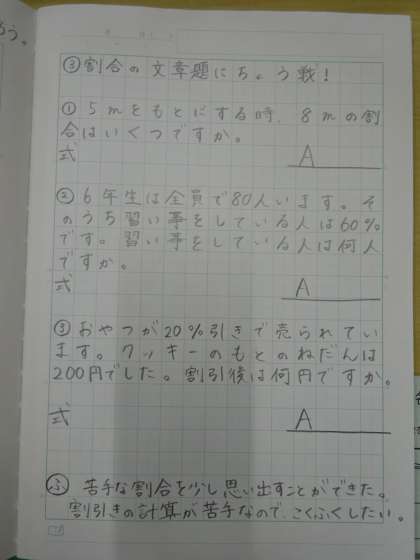 う。
③割合の文章題にちょう戦!
① 5mをもとにする時、8mの割
合はいくつですか。
式
A
② 6年生は全員で80人います。そ
のうち習い事をしている人は60%
です。習い事をしている人は何人
ですか。
式
A
③おやつが20%引きで売られてい
ます。クッキーのもとのねだんは
200円でした。割引後は何円ですか。
式
A
ふ 苦手な割合を少し思い出すことができた。
割引きの計算が苦手なので、こくふくしたい。